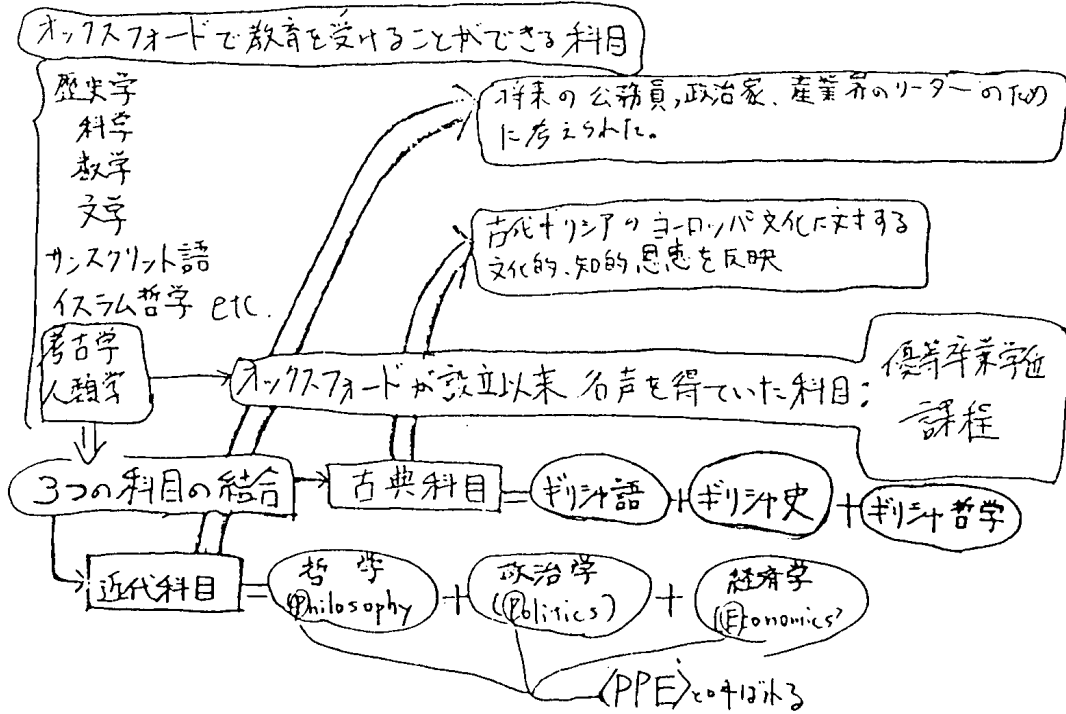 オックスフォードで教育を受けることができる科目
歴史学
科学
数学
文学
サンスクリット語
イスラム哲学 etc.
考古学
人類学
将来の公務員,政治家、産業界のリーダーのため
に考えられた。
古代ギリシアのヨーロッパ文化に対する
文化的、知的恩恵を反映
オックスフォードが設立以来名声を得ていた科目:
優等卒業学位
課程
3つの科目の結合
古典科目=ギリシャ語+ギリシャ史+ギリシャ哲学
近代科目=哲学+政治学+経済学
(Philosophy (Politics) (Economics)
〈PPE〉と呼ばれる